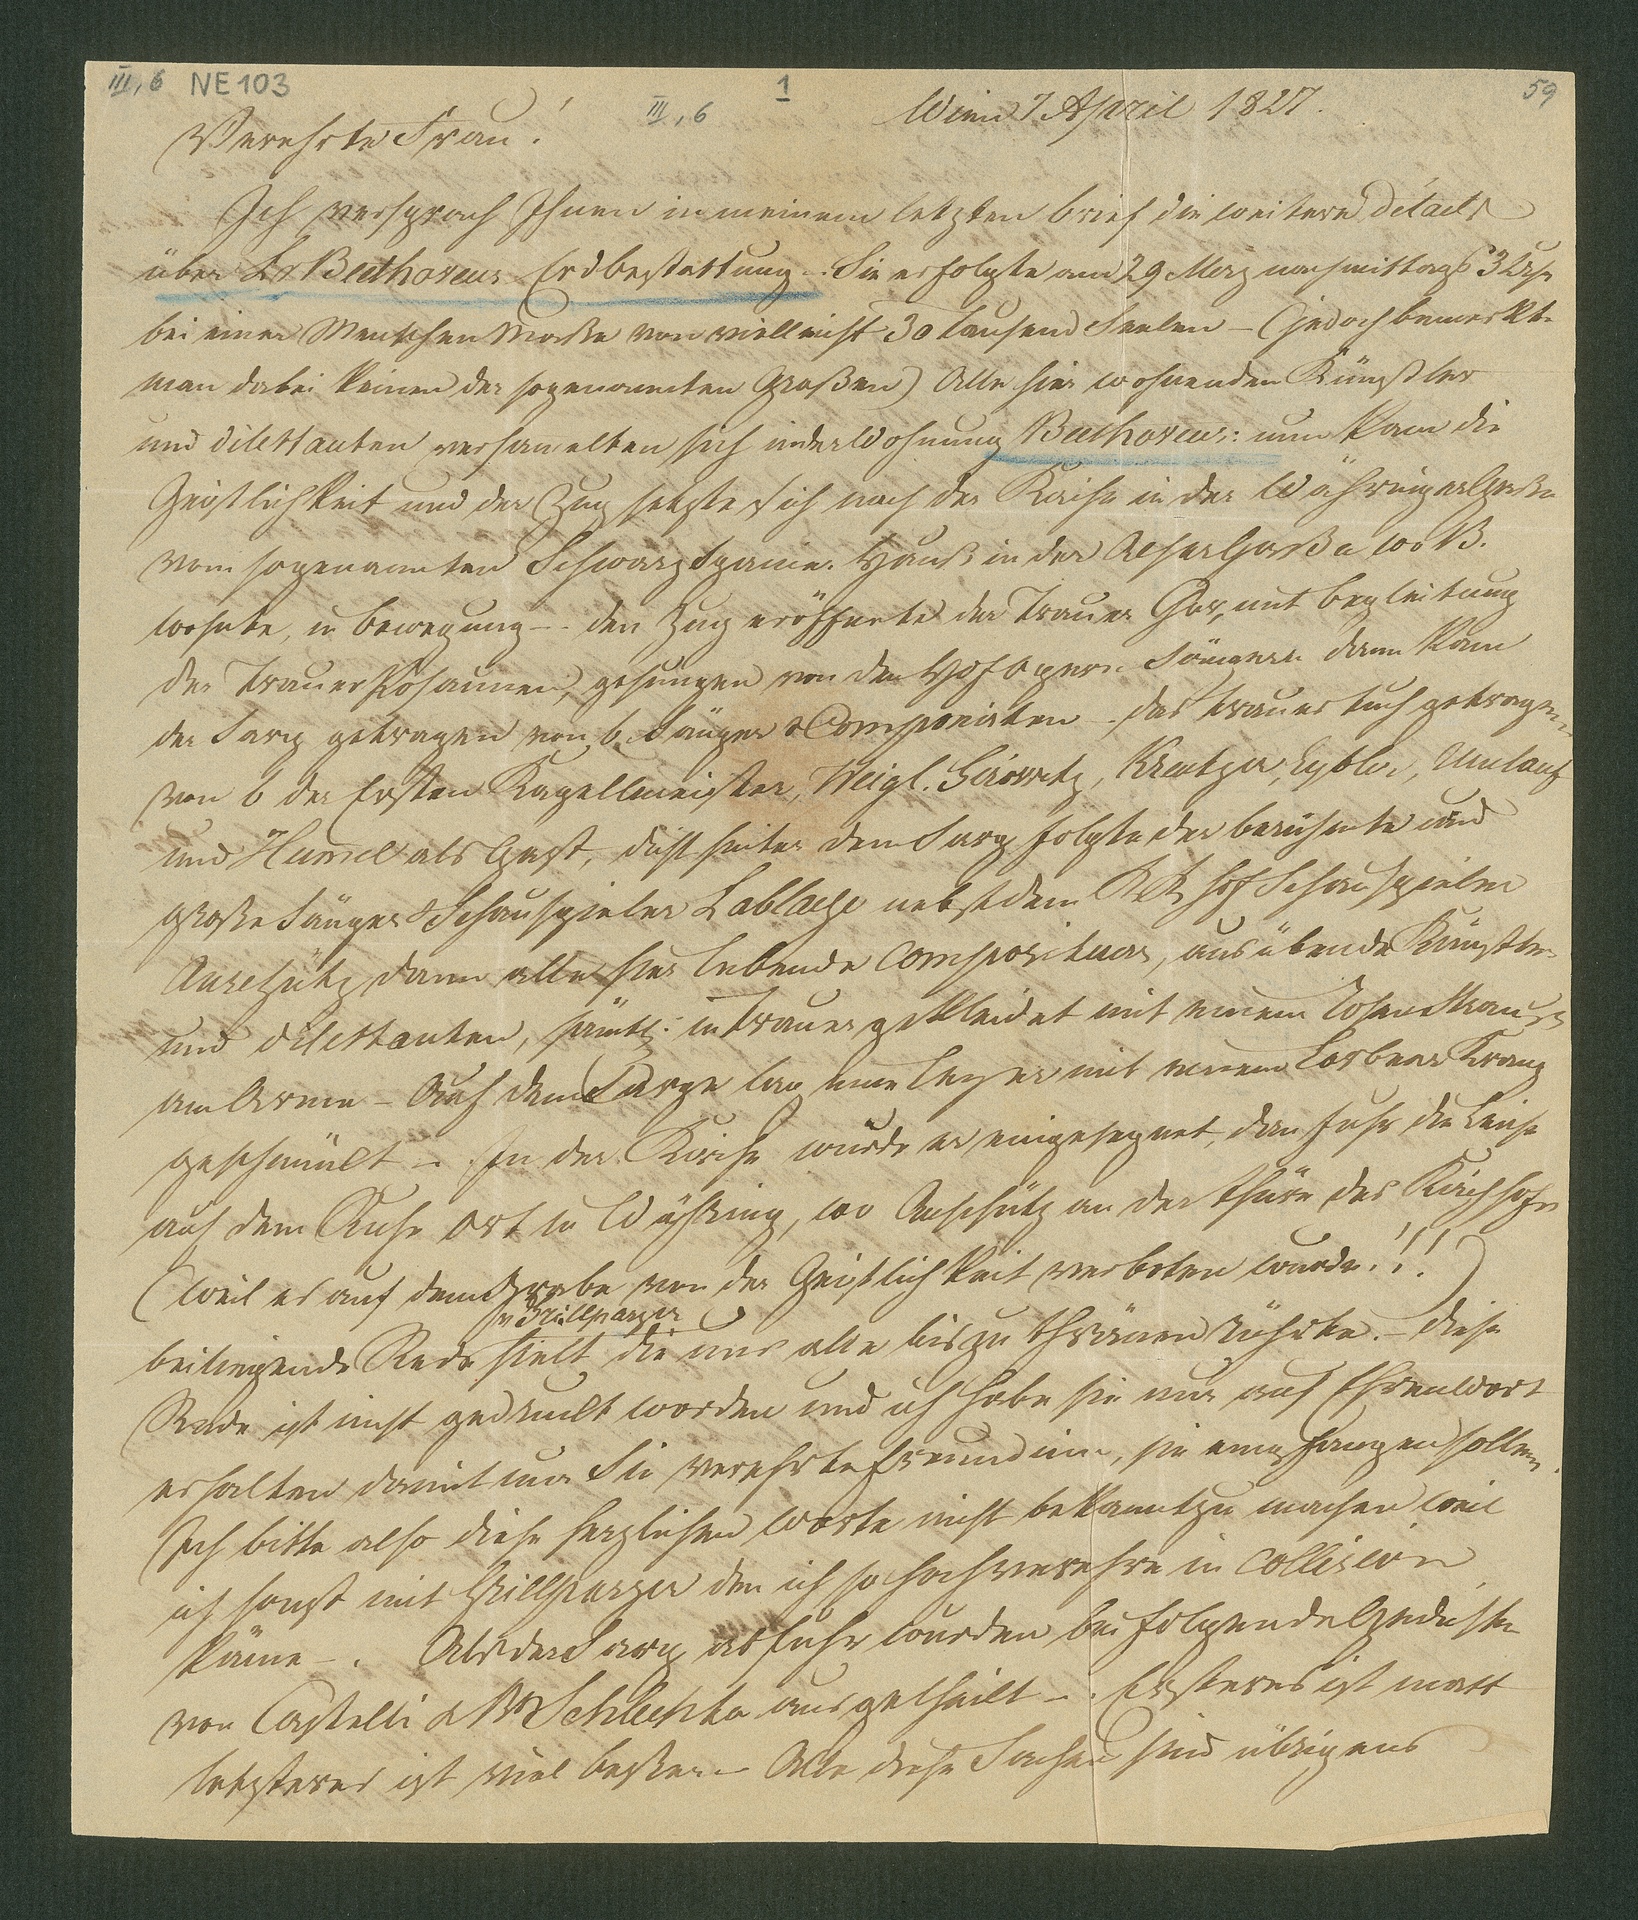 III, 6 NE 103
1
59
III, 6
Wien 7 April 1827.
Verehrte Frau!
Ich versprach Ihnen in meinem letzten brief die weitere détails
über L v Beethovens Erdbestattung – Sie erfolgte am 29 Merz nachmittags 3 Uhr
bei einer Menschen Maße von vielleicht 30 tausend Seelen – (jedoch bemerkte
man dabei keinen der sogenannten Großen) Alle hier wohnenden Künstler
und dilettanten versamelten sich in der Wohnung Beethovens: nun kam die
Geistlichkeit und der Zug setzte sich nach der Kirche in der Währingergaße
vom sogenannten Schwarzspanier Hauß in der Alsergaße wo B.
wohnte, in bewegung – den Zug eröffnete der Trauer Chor, mit begleitung
der Trauer Posaunen, gesungen von den Hof opern Sängern dann kam
der Sarg getragen von 6 Sänger & Componisten – das trauer tuch getragen
von 6 der Ersten Kapellmeister, Weigl. Girowetz, Kreutzer, Eybler, Umlauf
und Humel als Gast, dicht hinter dem Sarg folgte der berühmte und
große Sänger & Schauspieler Lablache nebst dem KK hof Schauspieler
Anschütz dann alle hier lebende Compositeurs, ausübende Künstler
und dilettanten, sämtl: in Trauer gekleidet mit einem Rosen Strauß
am Arme – Auf dem Sarge lag eine Leyer mit einem Lorbeer Kranz
geschmückt – In der Kirche wurde er eingesegnet, dan fuhr die Leiche
auf dem Ruhe ort in Währing, wo Anschütz an der thüre des Kirchhofes
(weil es auf dem Grabe von der Geistlichkeit verboten wurde!!!)
v Grillparzer
beiliegende Rede hielt die uns alle bis zu thränen rührte. – diese
Rede ist nicht gedruckt worden und ich habe sie nur auf Ehrenwort
erhalten damit nur Sie verehrte Freundinn, sie empfangen sollen.
Ich bitte also diese herzlichen Worte nicht bekannt zu machen weil
ich sonst mit Grillparzer den ich so hochverehre in Collision
käme –. Als der Sarg abfuhr wurden bei folgende Gedichte
von Castelli & Br Schlechta ausgetheilt –. Ersteres ist matt
letzteres ist viel beßer – Alle diese Sachen sind übrigens